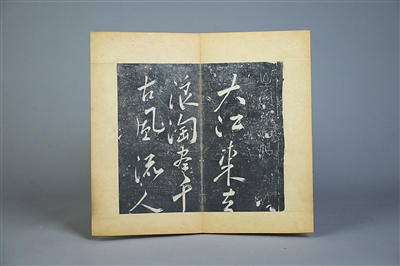 大江東去
浪淘盡千
古風流人